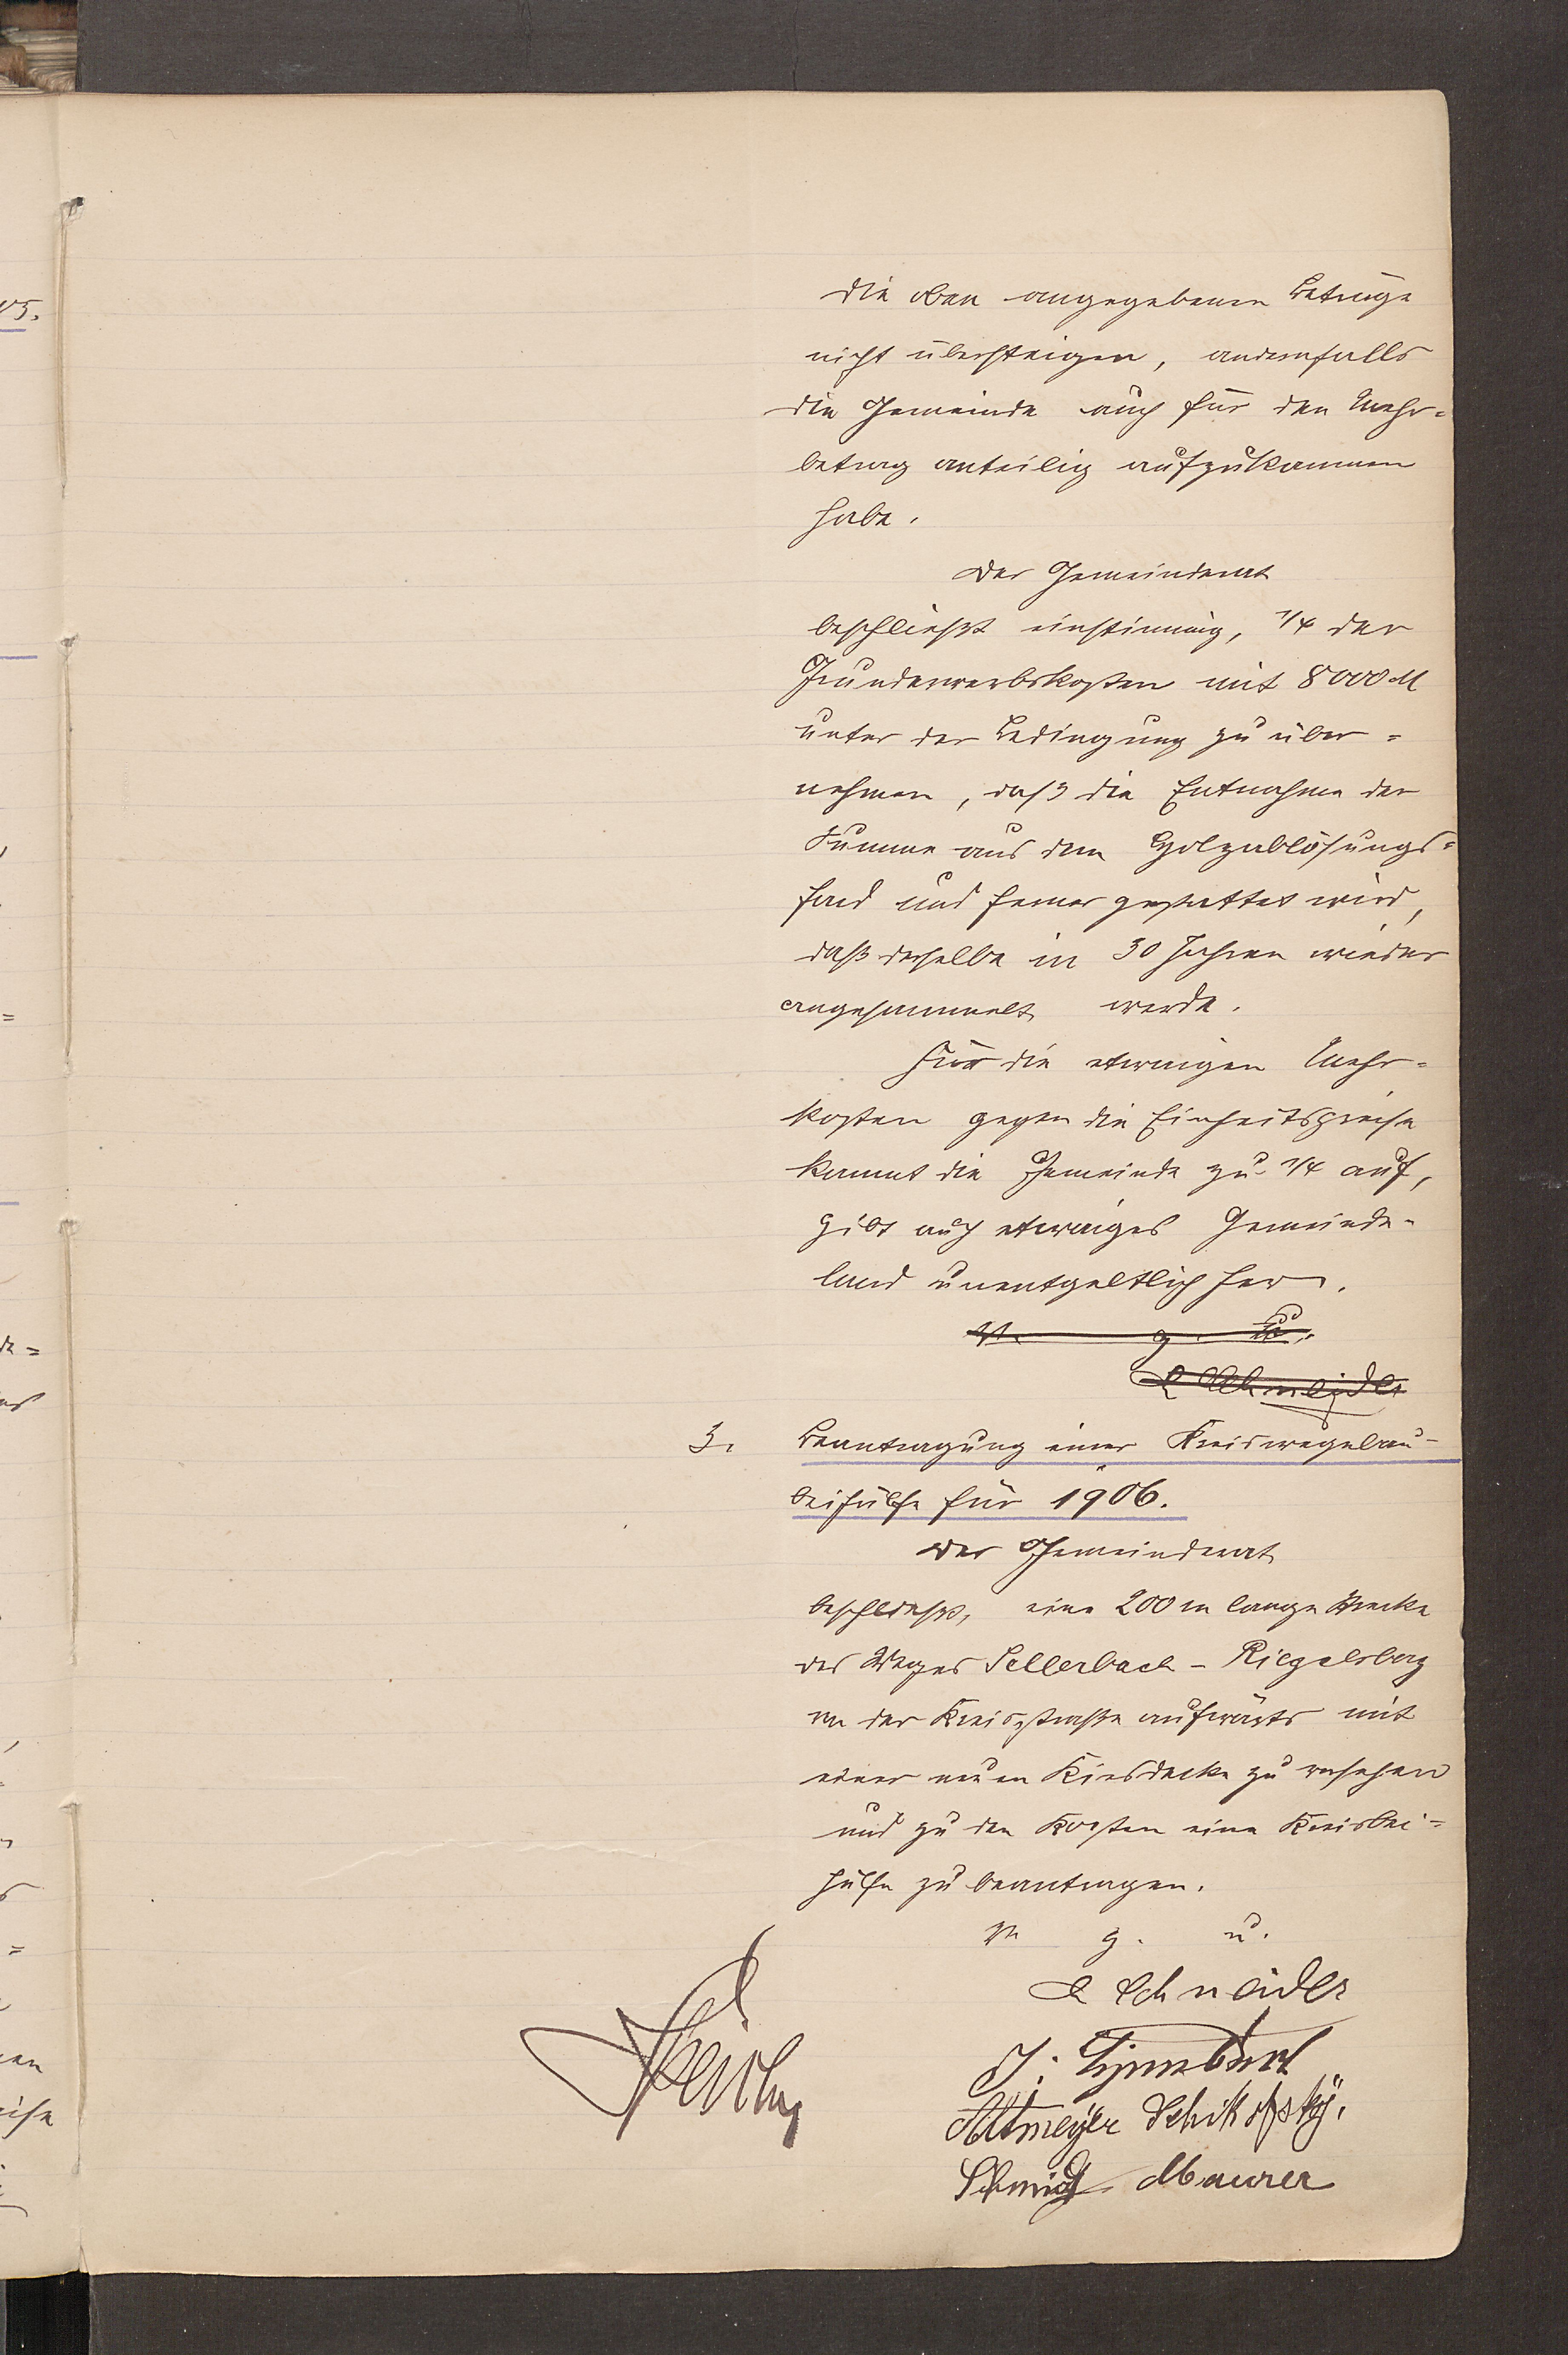 die oben angegebenen Beträge
nicht übersteigen, andernfalls
die Gemeinde auch für den Mehr-
betrag anteilig aufzukommen
habe.
Der Gemeinderat
beschließt einstimmig, 1/4 der
Grunderwerbskosten mit 8000 M
unter der Bedingung zu über=
nehmen, daß die Entnahme der
Summe aus dem Holzablösungs=
fond und ferner gestattet wird,
daß derselbe in 30 Jahren wieder
angesammelt werde.
Für die etwaigen Mehr-
kosten gegen die Einheitspreise
kommt die Gemeinde zu 1/4 auf,
gibt auch etwaiges Gemeinde-
land unentgeltlich her.
V. g. u.
Schneider
3. Beantragung einer Kreiswegebau-
beihülfe für 1906.
Der Gemeinderat
beschließt, eine 200 m lange Strecke
des Weges Sellerbach - Riegelsberg
von der Kreisstraße aufwärts mit
einer neuen Kiesdecke zu versehen
und zu den Kosten eine Kreisbei=
hülfe zu beantragen.
V. g. u.
Schneider
J.
Altmeyer Schikofsky.
Schmidt Maurer